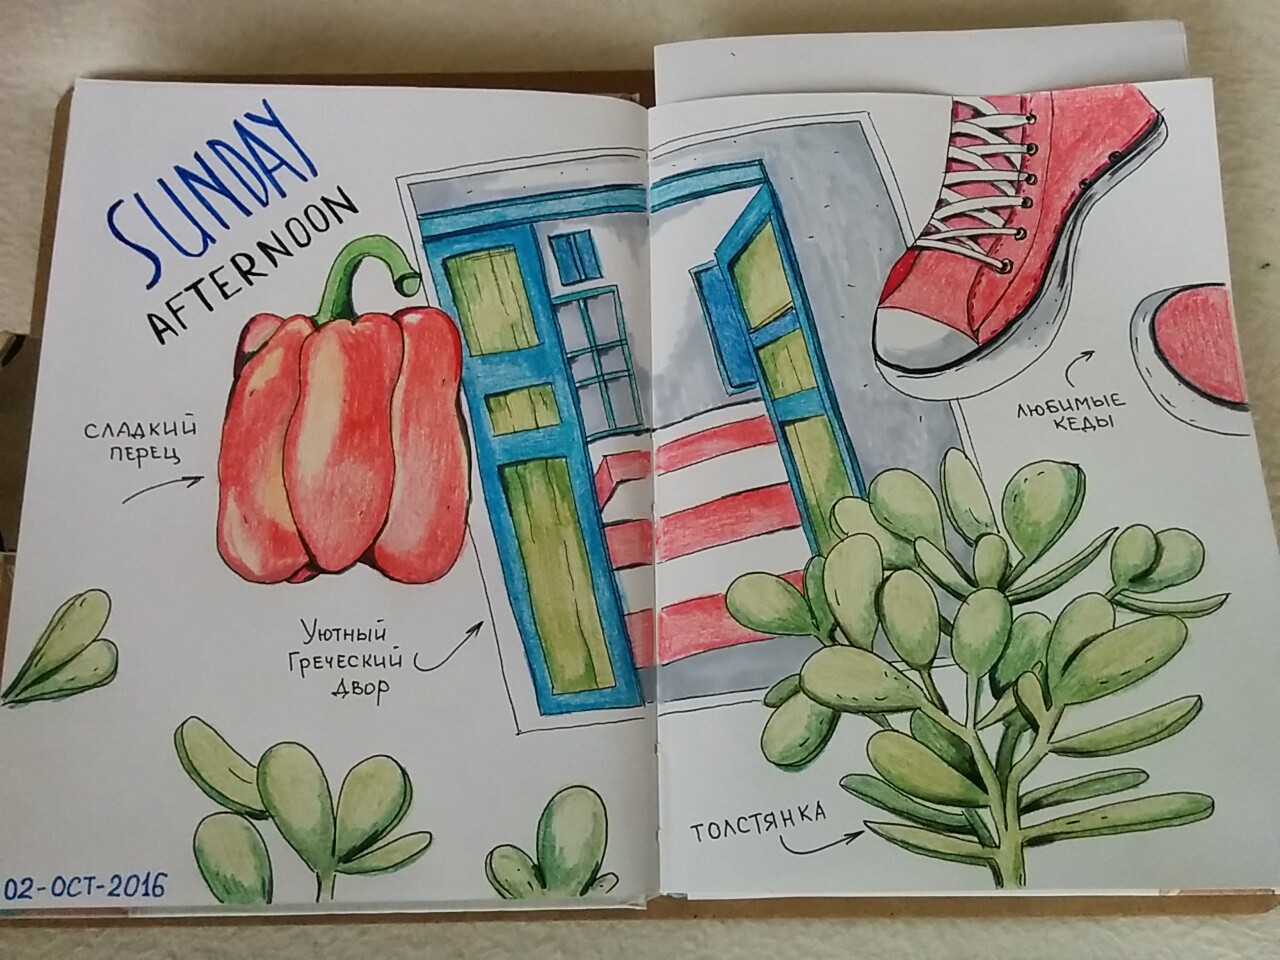 SUNDAY
AFTERNOON
СЛАДКИЙ
ПЕРЕЦ
Уютный
Греческий
двор
02-OCT-2016
ЛЮБИМЫЕ
КЕДЫ
ТОЛСТЯНКА